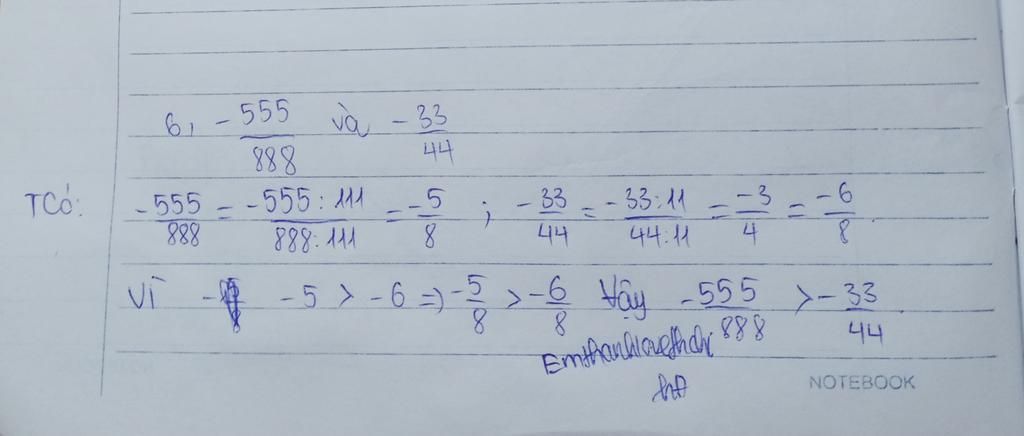 6, -555/888 và -33/44
TCó: -555/888 = -555:111/888:111 = -5/8 ; -33/44 = -33:11/44:11 = -3/4 = -6/8.
Vì -5 > -6 => -5/8 > -6/8 Vậy -555/888 > -33/44
NOTEBOOK